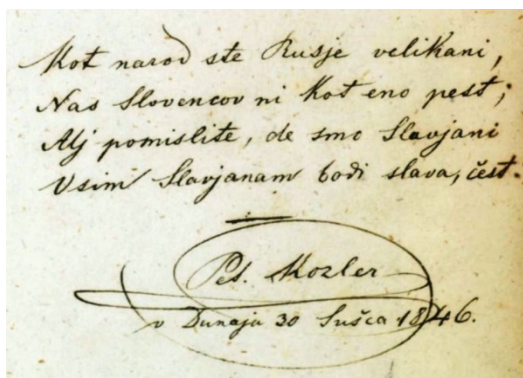 Kot narod ste Rusje velikani,
Nas Slovencov ni kot eno pest;
Alj pomislite, de smo Slavjani
Vsim Slavjanam bodi slava, čest.
Pet. Kozler
v Dunaja 30 Sušca 1846.